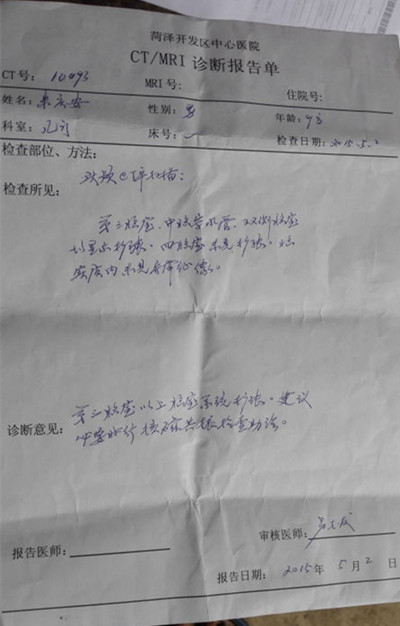 菏泽开发区中心医院
CT/MRI 诊断报告单
CT号: 10093 MRI号: 住院号:
姓名: 性别: 男 年龄:
科室: 床号: 检查日期: 2015.5.2
检查部位、方法:
检查所见: 头颅CT平扫描:
第三脑室、中脑导水管、双侧脑室
明显扩张。四脑室未见扩张。脑
实质内未见异常征像。
第三脑室以上脑室系统扩张。建议
诊断意见: 必要时行核磁共振检查助诊。
审核医师:
报告医师:
报告日期: 2015年 5月 2日